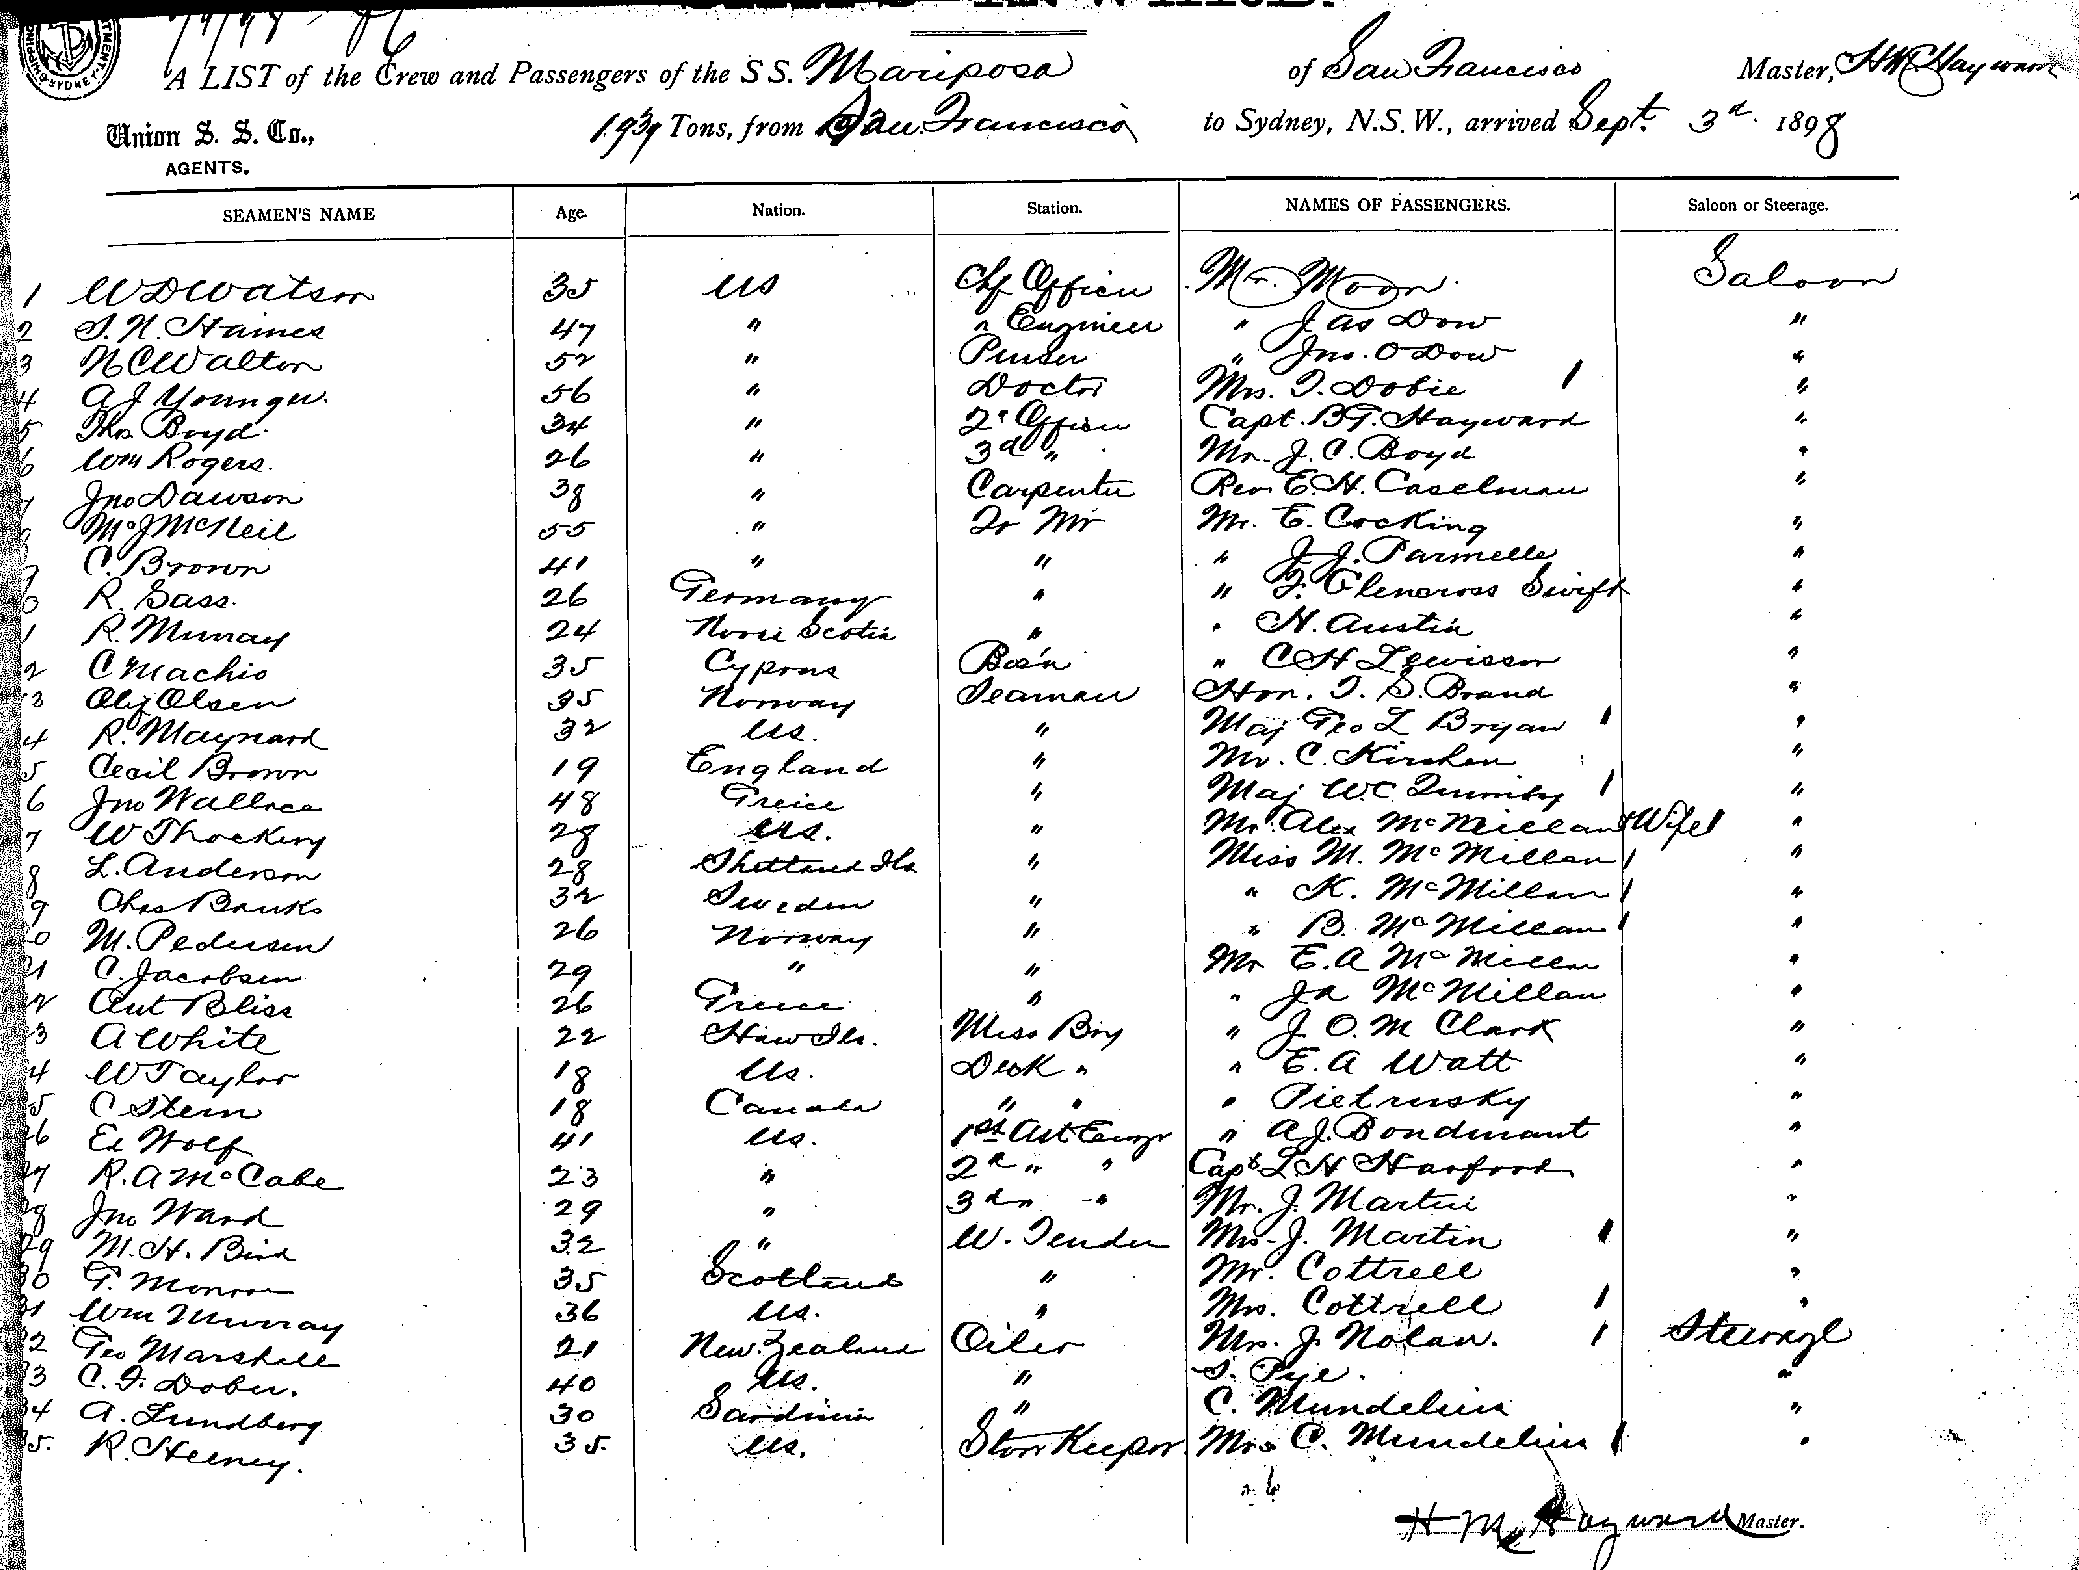 A LIST of the Crew and Passengers of the S S. Mariposa of San Francisco Master, H M Hayward
Union S. S. Co., 1939 Tons, from San Francisco to Sydney, N.S.W., arrived Sept. 3d. 1898
AGENTS.
SEAMEN'S NAME Age. Nation. Station. NAMES OF PASSENGERS. Saloon or Steerage.
1 W D Watson 35 US Chf Officer Mr. Moon Saloon
2 S. N. Haines 47 " " Engineer " Jas Dow "
3 N C Walton 52 " Purser " Jno. O Dow "
4 A J Younger. 56 " Doctor Mrs. T. Dobie 1 "
5 Thos Boyd. 34 " 2d Officer Capt. B T. Hayward "
6 Wm Rogers. 26 " 3d " Mr. J. C. Boyd "
7 Jno Dawson 38 " Carpenter Rev E. H. Caselman "
McNeil 55 " Qr Mr Mr. E. Cocking "
9 C. Brown 41 " " " J. J. Parmelle "
0 R. Sass. 26 Germany " " F. Glencross Swift "
1 R. Murray 24 Nova Scotia " " H. Austin "
2 C Machio 35 Cyprus Bos'n " C H Lewisson "
3 Olsen 35 Norway Seaman Hon. T. S. Brand "
4 R. Maynard 32 US. " Maj Geo L Bryan 1 "
5 Cecil Brown 19 England " Mr. C. Kirchen "
6 Jno Wallace 48 Greice " Maj W. C Quimby 1 "
7 W Thocking 28 US. " Mr. Alex McMillan & Wife 1 "
8 L. Anderson 28 Shetland Ils " Miss M. McMillan 1 "
9 Chas Banks 32 Sweden " " K. McMillan 1 "
0 M. Pedersen 26 Norway " " B. McMillan 1 "
21 C. Jacobsen 29 " " Mr E. A McMillan "
22 Ant Bliss 26 Greice " " McMillan "
23 A White 22 Haw Ils. Mess Boy " J. O. M Clark "
24 W Taylor 18 US. Deck " " E. A Watt "
25 C Stern 18 Canada " " " Pietrusky "
26 Ed Wolf 41 US. 1st Ast Engr " A. J. Bondurant "
27 R. A McCabe 23 " 2d " " Capt L H Harford "
28 Jno Ward 29 " 3d " " Mr. J. Martin "
29 M. H. Bird 32 " W. Tender Mrs. J. Martin 1 "
30 G. Monroe 35 Scotland " Mr. Cottrell "
31 Wm Murray 36 US. " Mrs. Cottrell 1 "
32 Geo Marshall 21 New Zealand Oiler Mrs. J. Nolan. 1 Steerage
33 C. F. Dober. 40 US. " S. Pye. "
34 A. Lundberg 30 Sardinia " C. Mundelius "
35. R. Heeney. 35. US. Store Keeper Mrs C. Mundelius 1 "
H M Hayward Master.